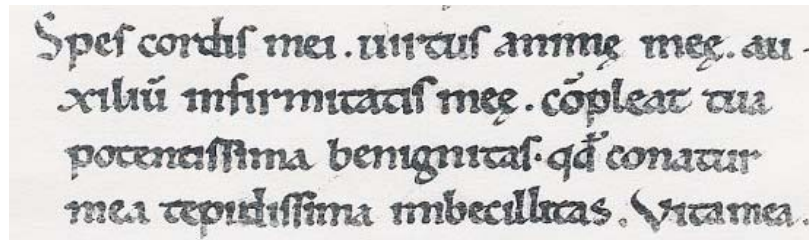 Speſ cordiſ mei . uirtuſ animę męę . au-
xiliū infirmitatiſ meę . cōpleat tua
potentiſſima benignitaſ . qđ conatur
mea tepidiſſima imbecillitas . Vita mea .